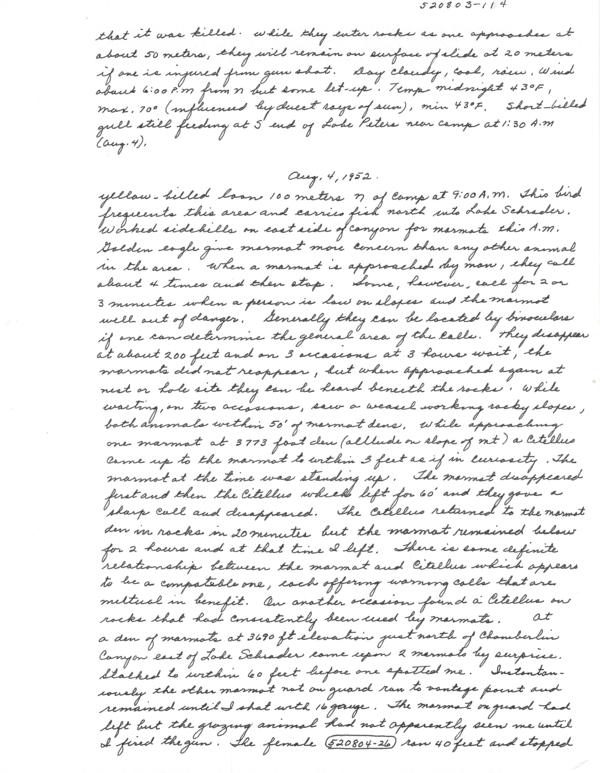 520803-114
that it was killed. While they enter rocks as one approaches at
about 50 meters, they will remain on surface of slide at 20 meters
if one is injured from gun shot. Day cloudy, cool, raw. Wind
about 6:00 P.M from N but some let-up. Temp midnight 43°F,
max. 70° (influenced by direct rays of sun), min 43°F. Short-billed
gull still feeding at S end of Lake Peters near camp at 1:30 A.M
(Aug. 4).
Aug. 4, 1952.
yellow-billed loon 100 meters N of camp at 9:00 A.M. This bird
frequents this area and carries fish north into Lake Schrader.
Worked sidehills on east side of canyon for marmots this A.M.
Golden eagle give marmot more concern than any other animal
in the area. When a marmot is approached by man, they call
about 4 times and then stop. Some, however, call for 2 or
3 minutes when a person is low on slopes and the marmot
well out of danger. Generally they can be located by binoculars
if one can determine the general area of the calls. They disappear
at about 200 feet and on 3 occasions at 3 hours wait, the
marmots did not reappear, but when approached again at
nest or hole site they can be heard beneath the rocks. While
waiting, on two occasions, saw a weasel working rocky slopes,
both animals within 50' of marmot dens. While approaching
one marmot at 3773 foot den (altitude on slope of mt) a Citellus
came up to the marmot to within 3 feet as if in curiosity. The
marmot at the time was standing up. The marmot disappeared
first and then the Citellus which left for 60' and they gave a
sharp call and disappeared. The Citellus returned to the marmot
den in rocks in 20 minutes but the marmot remained below
for 2 hours and at that time I left. There is some definite
relationship between the marmot and Citellus which appears
to be a compatable one, each offering warning calls that are
mutual in benefit. On another occasion found a Citellus on
rocks that had consistently been used by marmots. At
a den of marmots at 3690 ft elevation just north of Chamberlin
Canyon east of Lake Schrader came upon 2 marmots by surprise.
Stalked to within 60 feet before one spotted me. Instantan-
iously the other marmot not on guard ran to vantage point and
remained until I shot with 16 gauge. The marmot on guard had
left but the grazing animal had not apparently seen me until
I fired the gun. The female 520804-26 ran 40 feet and stopped